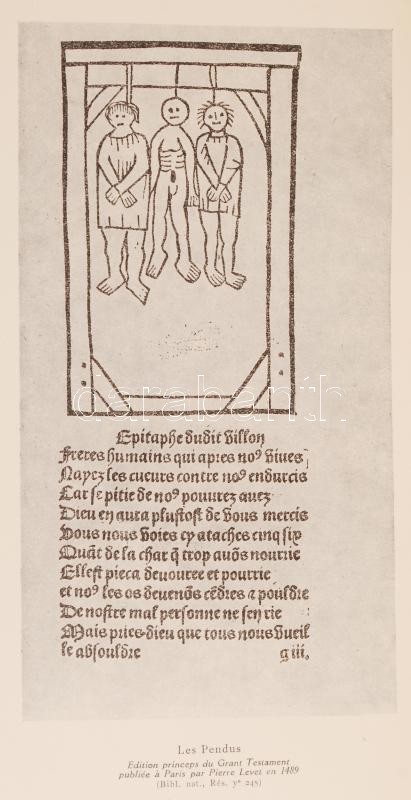 darabanth
Epitaphe dudit villon
Freres humains qui apres noꝰ viues
Nayez les cueurs contre noꝰ endurcis
Car se pitie de noꝰ pouurez auez
Dieu en aura plustost de vous mercis
Vous nous voies cy ataches cinq six
Quãt de la char q̃ trop auõs nourrie
Ellest pieca deuouree et pourrie
et noꝰ les os deuenõs cẽdres ⁊ pouldre
De nostre mal personne ne sen rie
Mais pries dieu que tous nous vueil
le absouldre g iii.
Les Pendus
Edition princeps du Grant Testament
publiée à Paris par Pierre Levet en 1489
(Bibl. nat., Rés. yᵉ 245)